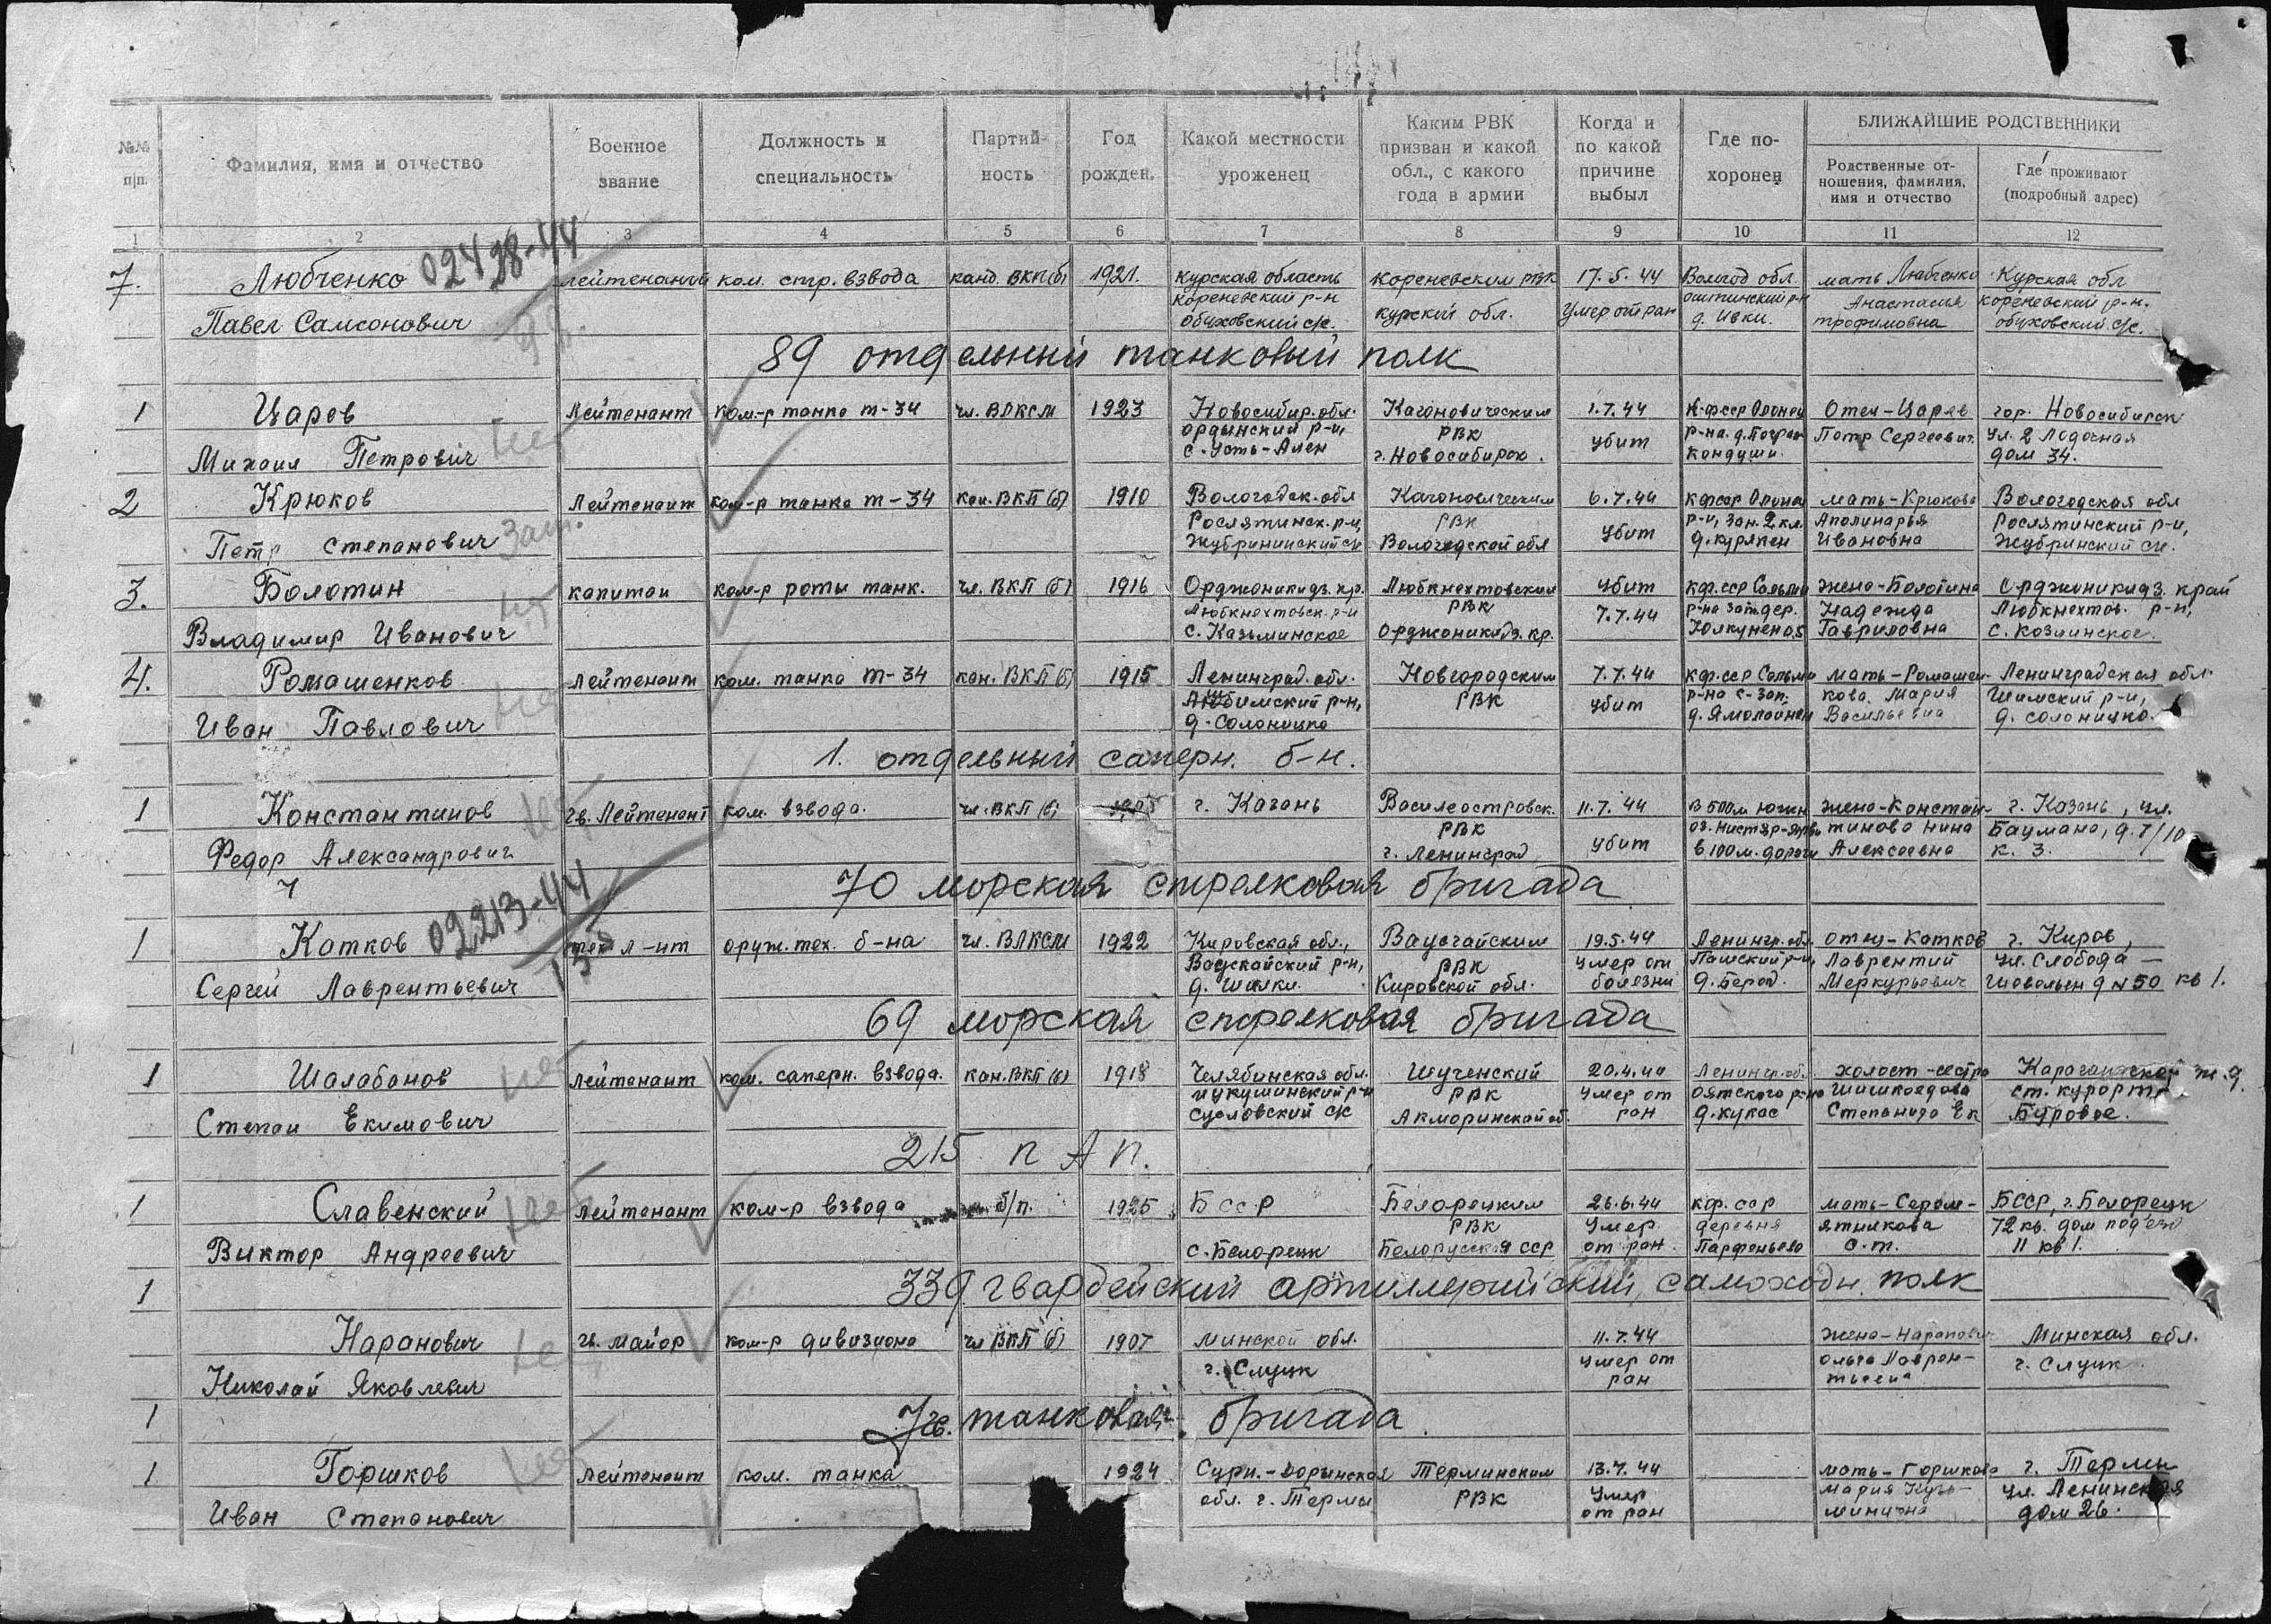 №№ п|п.
Фамилия, имя и отчество
Военное звание
Должность и специальность
Партий-ность
Год рожден.
Какой местности уроженец
Каким РВК призван и какой обл., с какого года в армии
Когда и по какой причине выбыл
Где по-хоронен
БЛИЖАЙШИЕ РОДСТВЕННИКИ
Родственные от-ношения, фамилия, имя и отчество
Где проживают (подробный адрес)
1 2 3 4 5 6 7 8 9 10 11 12
02428-44
7. Любченко лейтенант ком. стр. взвода канд. ВКП(б) 1921. Курская область Кореневским РВК 17.5.44 Волгод обл. мать Любченко Курская обл
Кореневский р-н Анастасия кореневский р-н.
Павел Самсонович Обуховский с/с. Курской обл. Умер от ран д. Ивки. трофимовна обуховский с/с.
89 отдельный танковый полк
1 Царев Лейтенант ком-р танка т-34 чл. ВЛКСМ 1923 Новосибир. обл. Кагановическим 1.7.44 К-фсср Олонец Отец-Царев гор. Новосибирск
Ордынский р-н, РВК убит р-на. д. Петр Сергеевич. ул. 2 Лодочная
Михаил Петрович с. Усть-Ален г. Новосибирск. Кондуши. дом 34.
2 Крюков Лейтенант ком-р танка т-34 кан. ВКП(б) 1910 Вологодск. обл Кагановическим 6.7.44 кфсср Олонец мать-Крюкова Вологодская обл
Рослятинск. р-н, РВК убит р-н, Зап. 2 кл. Аполинарья Рослятинский р-н,
Петр Степанович Вологодской обл д. куряпен Ивановна Жубринский с/с.
3. Болотин капитан ком-р роты танк. чл. ВКП(б) 1916 Орджоникидз. кр. Любкнехтовским убит кф.сср жена-Болотина Орджоникидз. край
Любкнехтовск. р-н РВК 7.7.44 р-на зап. дер. Надежда Любкнехтов. р-н,
Владимир Иванович с. Казьминское Орджоникидз. кр. Гавриловна с. козминское.
4. Ромашенков Лейтенант ком. танка т-34 кан. ВКП(б) 1915 Ленинград. обл. Новгородским 7.7.44 кф.сср мать-Ромашен- Ленинградская обл.
р-н, РВК убит р-на с-зап. кова. Мария Шимский р-н,
Иван Павлович д. Солоницко Васильевна д. солоницко.
1. отдельный саперн. б-н.
1 Константинов гв. Лейтенант ком. взвода. чл. ВКП(б) г. Казань Василеостровск. 11.7.44 в 500м южн жена-Констан- г. Казань, ул.
РВК убит тинова Нина Баумана, д. 7/10
Федор Александрович г. Ленинград в 100м. дороги Алексеевна к. 3.
70 морская стрелковая бригада
02213-44
1 Котков тех л-нт оруж. тех. б-на чл. ВЛКСМ 1922 Кировская обл., 19.5.44 Ленингр. обл. отец-Котков г. Киров,
р-н, РВК умер от Пашский р-н, Лаврентий ул. Слобода —
Сергей Лаврентьевич Кировской обл. болезни д. Меркурьевич д №50 кв 1.
69 морская стрелковая бригада
1 Шалабанов лейтенант ком. саперн. взвода. кан. ВКП(б) 1918 Челябинская обл. Шученский 20.4.44 Ленингр. обл. холост-сестра
р-н РВК умер от ст. курорт
Степан Екимович с/с ран д. кукас Степанида Ек Буровое.
215 п А п.
1 Славенский лейтенант ком-р взвода б/п. 1925 БССР Белорецким 26.6.44 кф. сср БССР, г. Белорецк
РВК Умер деревня 72 кв. дом
Виктор Андреевич с. Белорецк Белорусская сср от ран. Парфеньево 11 кв 1.
339 гвардейский артиллерийский самоходн. полк
1
Наранович гв. майор ком-р дивизиона чл ВКП(б) 1907 Минской обл. 11.7.44 жена-Наранович Минская обл.
г. Слуцк умер от ран Ольга Лаврен- г. Слуцк.
Николай Яковлевич тьевна
7 гв. танковая бригада
1
1 Горшков лейтенант ком. танка 1924 Терминским 13.7.44 мать-Горшкова г. Термы
обл. г. Термы РВК Умер ул. Ленинская
Иван Степанович от ран дом 26.